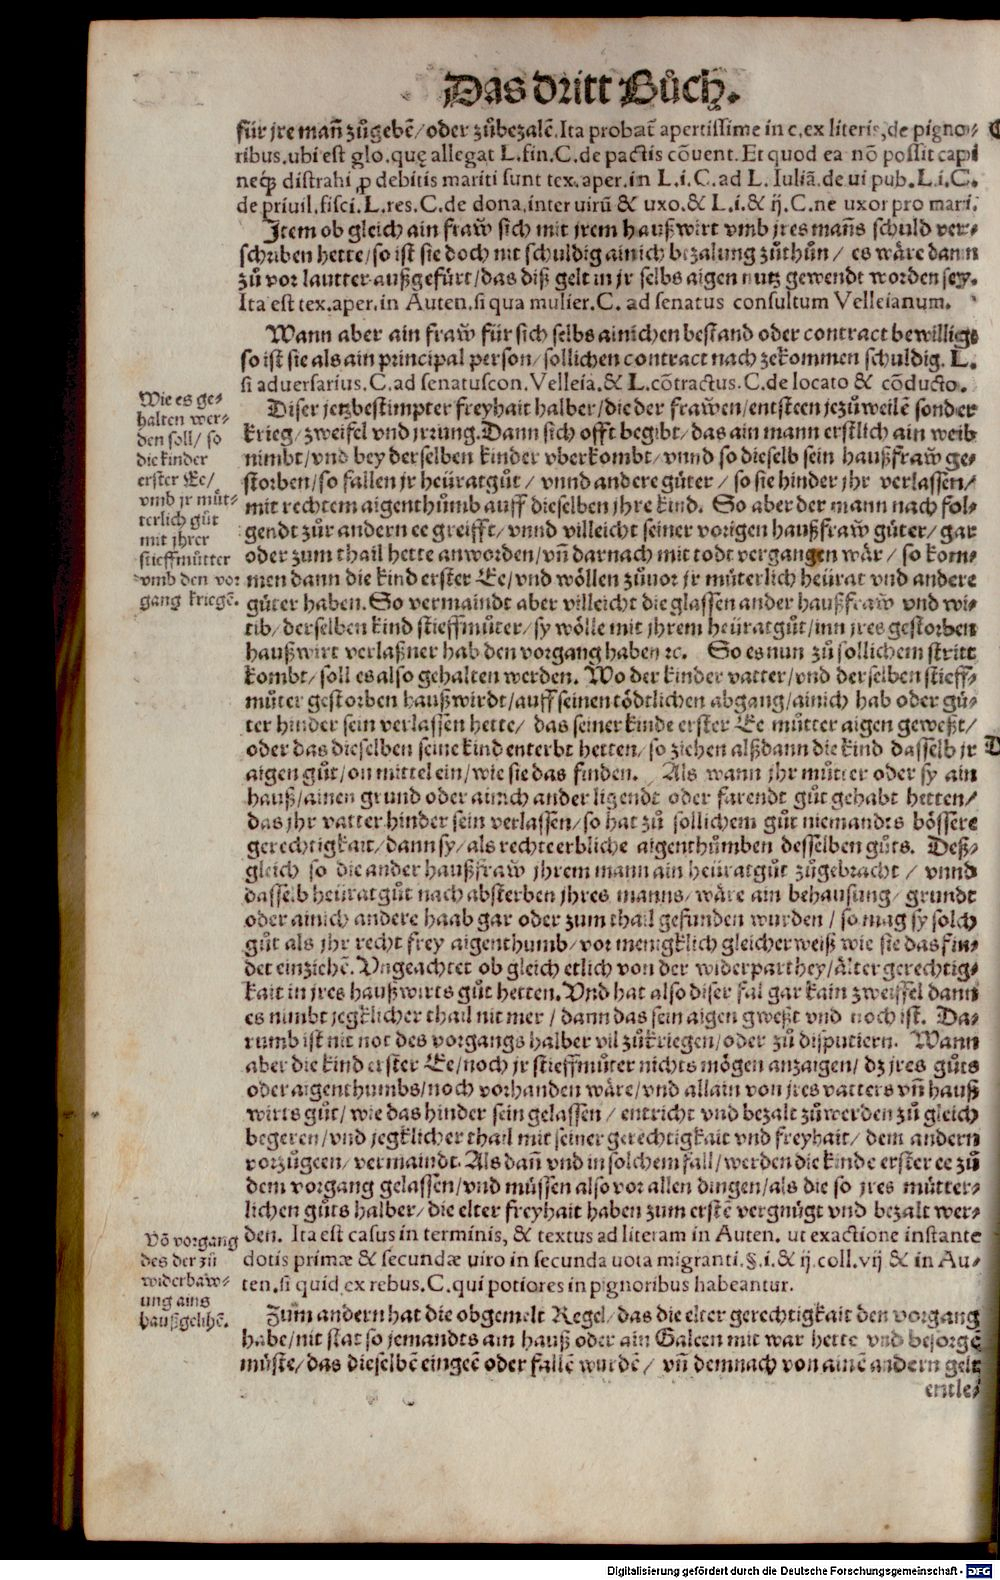 Das dritt Bůch.
für jre mañ zůgebẽ/oder zůbezalẽ. Ita probat̃ apertissime in c. ex literis, de pigno-
ribus. ubi est glo. quę allegat L. fin. C. de pactis cõuent. Et quod ea nõ possit capi
neq̃ distrahi ꝓ debitis mariti sunt tex. aper. in L. i. C. ad L. Iuliã. de ui pub. L. i. C.
de priuil. fisci. L. res. C. de dona. inter uirũ & uxo. & L. i. & ij. C. ne uxor pro mari.
Item ob gleich ain fraw sich mit jrem haußwirt vmb jres mañs schuld ver-
schriben hette/so ist sie doch nit schuldig ainich bezalung zůthůn/ es wäre dann
zů vor lautter außgefürt/das diß gelt in jr selbs aigen nutz gewendt worden sey.
Ita est tex. aper. in Auten. si qua mulier. C. ad senatus consultum Velleianum.
Wann aber ain fraw für sich selbs ainichen bestand oder contract bewilligt
so ist sie als ain principal person/sollichen contract nach zekommen schuldig. L.
si aduersarius. C. ad senatuscon. Velleia. & L. cõtractus. C. de locato & cõducto.
Wie es ge-
halten wer-
den soll/ so
die kinder
erster Ee/
vmb jr můt-
terlich gůt
mit jhrer
stieffmůtter
vmb den vor
gang kriegẽ.
Diser jetzbestimpter freyhait halber/die der frawen/entsteen jezůweilẽ sonder
krieg/zweifel vnd jrrung. Dann sich offt begibt/das ain mann erstlich ain weib
nimbt/vnd bey derselben kinder vberkombt/vnnd so dieselb sein haußfraw ge-
storben/so fallen jr heüratgůt/ vnnd andere güter/ so sie hinder jhr verlassen/
mit rechtem aigenthůmb auff dieselben jhre kind. So aber der mann nach fol-
gendt zůr andern ee greifft/vnnd villeicht seiner vorigen haußfraw güter/ gar
oder zum thail hette anworden/vñ darnach mit todt vergangen wär/ so kom-
men dann die kind erster Ee/vnd wöllen zůuor jr můterlich heürat vnd andere
güter haben. So vermaindt aber villeicht die glassen ander haußfraw vnd wi-
tib/derselben kind stieffmůter/sy wölle mit jhrem heüratgůt/inn jres gestorben
haußwirt verlaßner hab den vorgang haben ꝛc. So es nun zů sollichem stritt
kombt/soll es also gehalten werden. Wo der kinder vatter/vnd derselben stieff-
můter gestorben haußwirdt/auff seinen tödtlichen abgang/ainich hab oder gü-
ter hinder sein verlassen hette/ das seiner kinde erster Ee můtter aigen geweßt/
oder das dieselben seine kind enterbt hetten/so ziehen alßdann die kind dasselb jr
aigen gůt/on mittel ein/wie sie das finden. Als wann jhr můtter oder sy ain
hauß/ainen grund oder ainich ander ligendt oder farendt gůt gehabt hetten/
das jhr vatter hinder sein verlassen/so hat zů sollichem gůt niemandts bössere
gerechtigkait/dann sy/als rechte erbliche aigenthůmben desselben gůts. Deß-
gleich so die ander haußfraw jhrem mann ain heüratgůt zůgebracht/ vnnd
dasselb heüratgůt nach absterben jhres manns/wäre ain behausung/ grundt
oder ainich andere haab gar oder zum thail gefunden wurden/so mag sy solch
gůt als jhr recht frey aigenthumb/vor menigklich gleicherweiß wie sie das fin-
det einziehẽ. Vngeachtet ob gleich etlich von der widerparthey/älter gerechtig-
kait in jres haußwirts gůt hetten. Vnd hat also diser fal gar kain zweiffel dann
es nimbt jegklicher thail nit mer/ dann das sein aigen gweßt vnd noch ist. Da-
rumb ist nit not des vorgangs halber vil zůkriegen/oder zů disputiern. Wann
aber die kind erster Ee/noch jr stieffmůter nichts mögen anzaigen/ dz jres gůts
oder aigenthumbs/noch vorhanden wäre/vnd allain von jres vatters vñ hauß
wirts gůt/wie das hinder sein gelassen/ entricht vnd bezalt zůwerden zů gleich
begeren/vnd jegklicher thail mit seiner gerechtigkait vnd freyhait/ dem andern
vorzůgeen/vermaindt. Als dañ vnd in solchem fall/werden die kinde erster ee zů
dem vorgang gelassen/vnd müssen also vor allen dingen/als die so jres můtter-
lichen gůts halber/die elter freyhait haben zum erstẽ vergnügt vnd bezalt wer-
den. Ita est casus in terminis, & textus ad literam in Auten. ut exactione instante
dotis primæ & secundæ uiro in secunda uota migranti. §. i. & ij. coll. vij & in Au-
ten. si quid ex rebus. C. qui potiores in pignoribus habeantur.
Võ vorgang
des der zů
widerbaw-
ung ains
hauß gelihẽ.
Zum andern hat die obgemelt Regel/das die elter gerechtigkait den vorgang
habe/nit stat so jemandts ain hauß oder ain Galeen mit war hette vnd besorgẽ
müste/das dieselbẽ eingeẽ oder fallẽ wurdẽ/ vñ demnach von ainẽ andern gelt
entle-
Digitalisierung gefördert durch die Deutsche Forschungsgemeinschaft - DFG